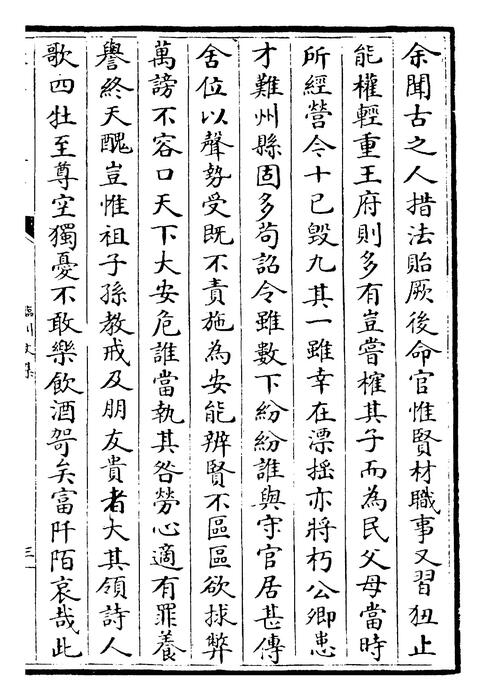 余聞古之人措法貽厥後命官惟賢材職事又習狃止
能權輕重王府則多有豈嘗榷其子而為民父母當時
所經營今十已毀九其一雖幸在漂揺亦將朽公卿患
才難州縣固多苟詔令雖數下紛紛誰與守官居甚傳
舍位以聲勢受既不責施為安能辨賢不區區欲捄弊
萬謗不容口天下大安危誰當執其咎勞心適有罪養
譽終天醜豈惟祖子孫教戒及朋友貴者大其領詩人
歌四牡至尊空獨憂不敢樂飲酒哿矣富阡陌哀哉此
臨川文集
三